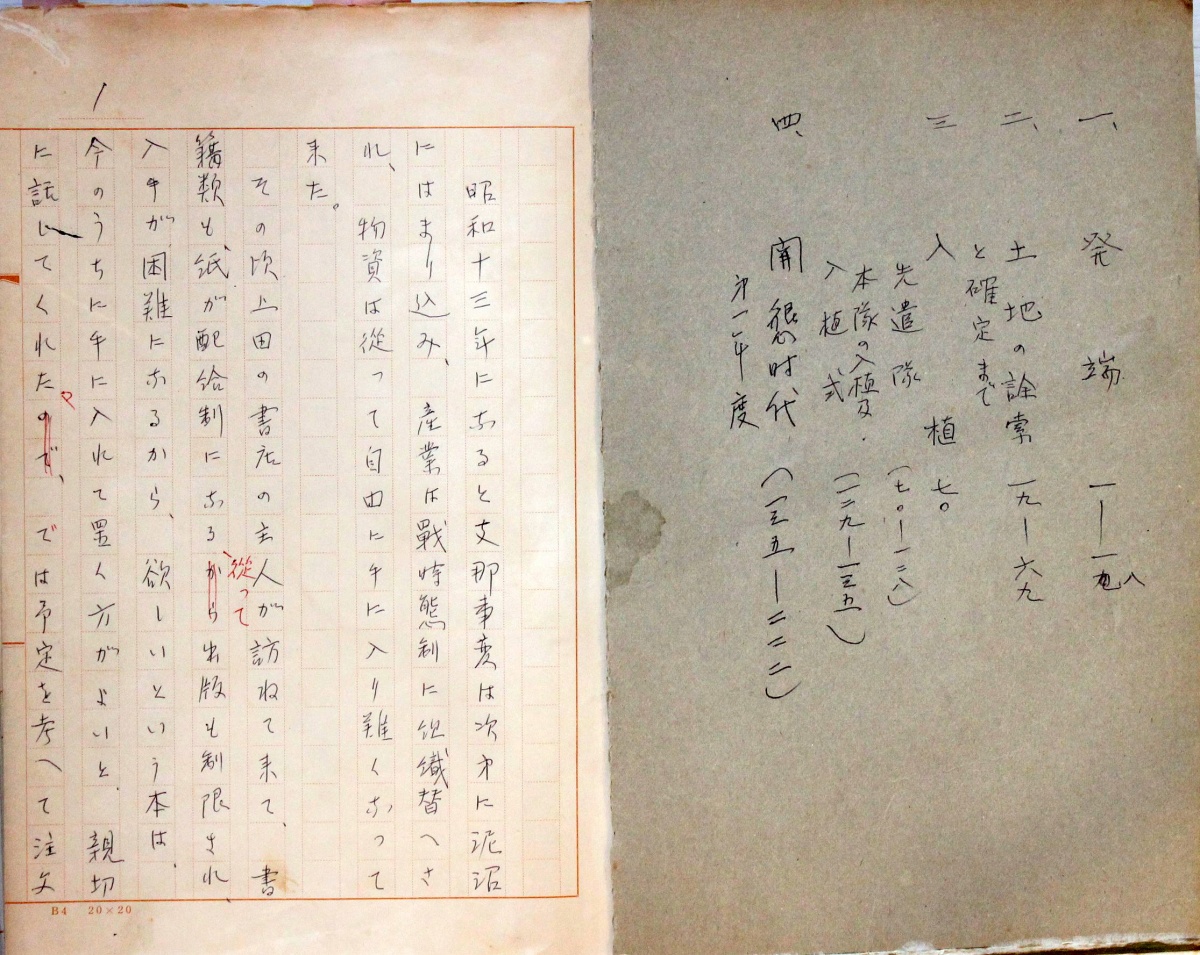 一、発端 一—一八
二、土地の詮索 一九—六九
と確定まで
三 入植 七〇
先遣隊 (七〇—一二八)
本隊の入植及
入植式 (一二九—一三五)
四、開墾時代 (一三五—二二二)
才一年度
1
昭和十三年になると支那事変は次才に泥沼
にはまり込み、産業は戰時態制に組織替へさ
れ、物資は従って自由に手に入り難くなって
来た。
その頃上田の書店の主人が訪ねて来て、書
籍類も紙が配給制になる、から従って出版も制限され、
入手が困難になるから、欲しいという本は、
今のうちに手に入れて置く方がよいと、親切
に話してくれた。ので、では予定を考へて注文
B4 20×20